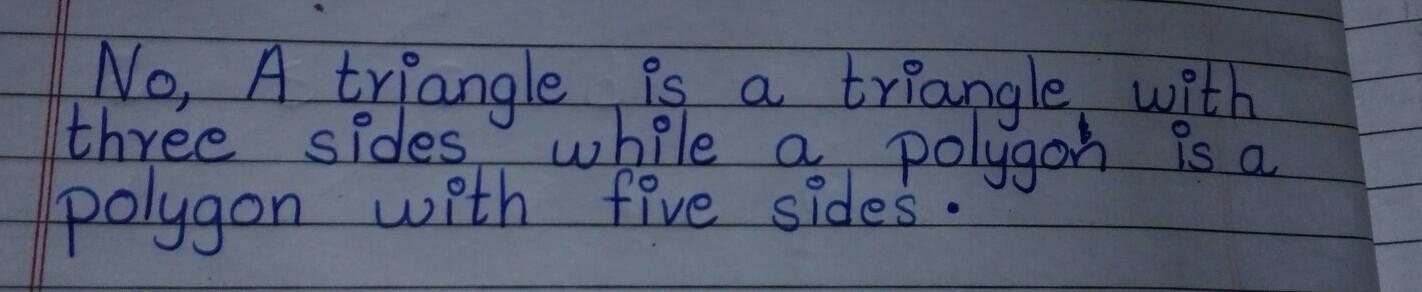 No, A triangle is a triangle with
three sides while a polygon is a
polygon with five sides.